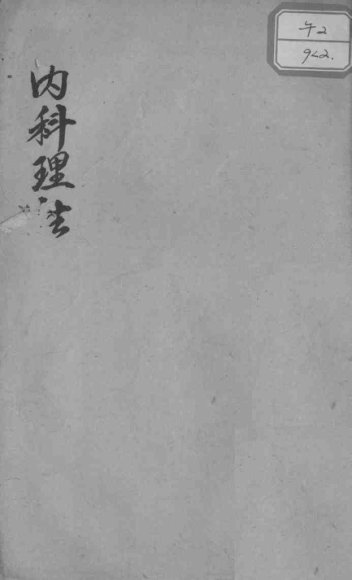 内科理法
午2
942.